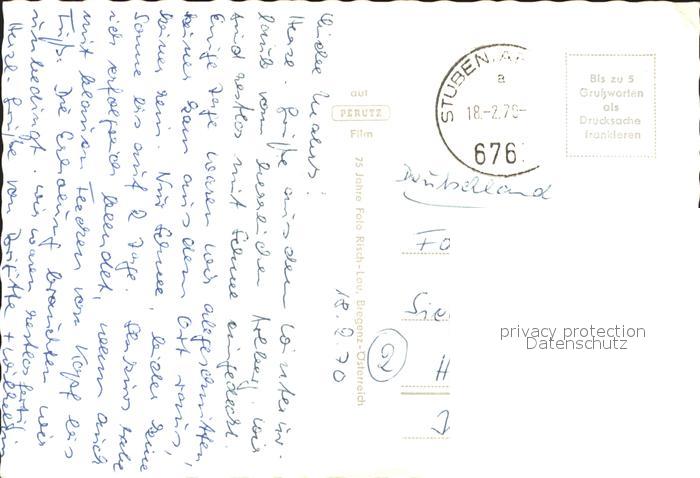 Liebe
Herzl. Grüße aus dem Winterur-
laub vom herrlichen Arlberg. Wir
sind restlos mit Schnee eingedeckt.
Einige Tage waren wir abgeschnitten,
keiner kam aus dem Ort raus,
keiner rein. Nur Schnee, leider keine
Sonne bis auf 2 Tage.
ich erfolgreich beendet, wenn auch
mit blauen Flecken von Kopf bis
Fuß. Die Erholung brauchten wir
unbedingt. wir waren restlos fertig.
Herzl. Grüße von
18.2.70
auf
PERUTZ
Film
75 Jahre Foto Risch-Lau, Bregenz-Österreich
STUBEN, A
a
18.-2.70-
676
Bis zu 5
Grußworten
als
Drucksache
frankieren
Deutschland
Fo
Sie
H
2
privacy protection
Datenschutz